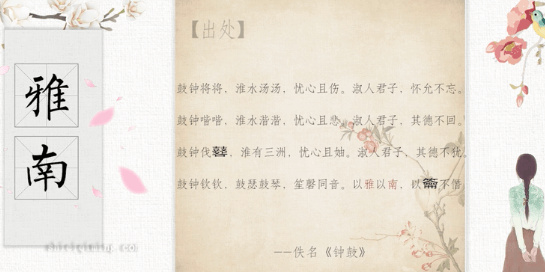 雅
南
【出处】
鼓钟将将，淮水汤汤，忧心且伤。淑人君子，怀允不忘。
鼓钟喈喈，淮水湝湝，忧心且悲。淑人君子，其德不回。
鼓钟伐鼛，淮有三洲，忧心且妯。淑人君子，其德不犹。
鼓钟钦钦，鼓瑟鼓琴，笙磬同音。以雅以南，以籥不僭。
——佚名《钟鼓》